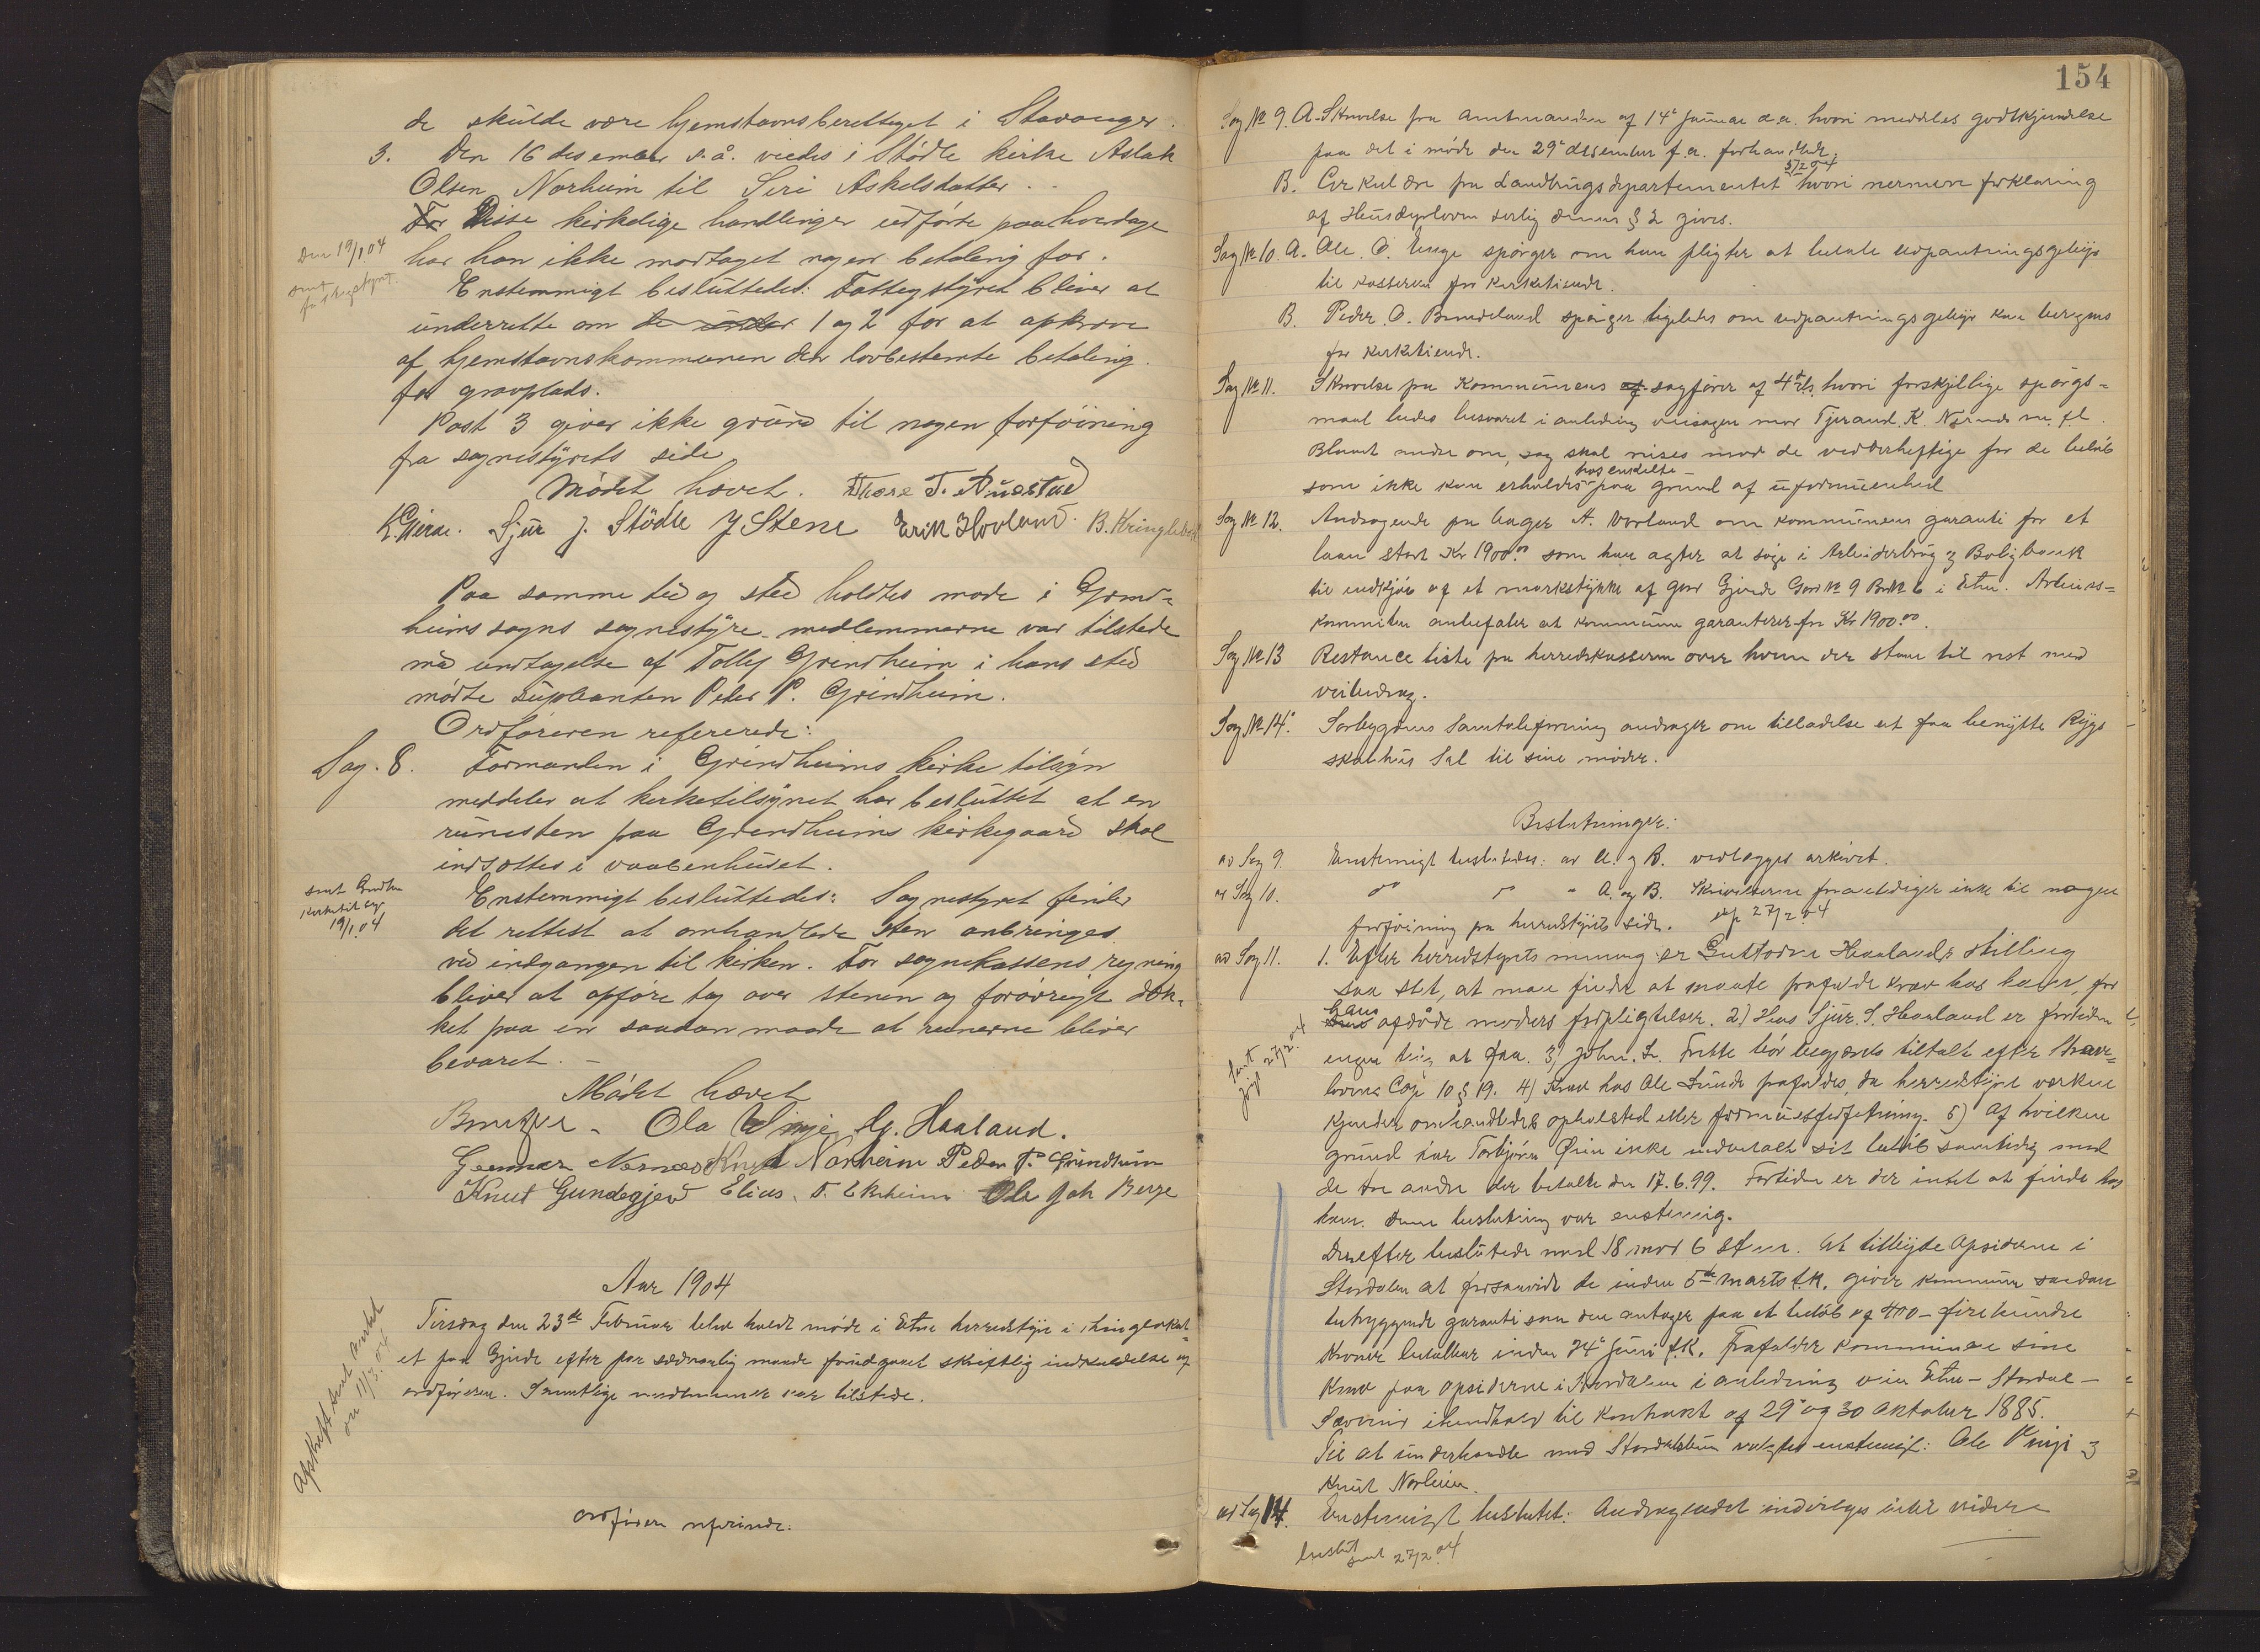 de skulde være hjemstavnsberettyet i Stavanger.
3. Den 16 desember s.å. viedes i Stødle kirke Aslak
Olsen Norheim til Siri Askelsdatter.
For Disse kirkelige handlinger udførte paa hverdage
har han ikke modtaget nogen betaling for.
Den 19/1 04
sent
Enstemmigt besluttedes: Fattigstyret bliver at
underrette om de under 1 og 2 for at opkræve
af hjemstavnskommunen den lovbestemte betaling
for gravplads.
Post 3 giver ikke grund til nogen forføining
fra sognestyrets side
Mødet hævet. Thore T. Austad
K. Gjerae. Sjur J. Stødle J Stene Erik Hovland. B. Kringlebo
Paa samme tid og sted holdtes møde i Grind-
heims sogns sognestyre. medlemmerne var tilstede
med undtagelse af Tollef Grindheim i hans sted
mødte supleanten Peder P. Grindheim.
Ordføreren refererede:
Sag. 8. Formanden i Grindheims kirke tilsyn
meddeler at kirketilsynet har besluttet at en
runesten paa Grindheims kirkegaard skal
indsættes i vaabenhuset.
sent Grindheim
kirketilsyn
19/1 04
Enstemmigt besluttedes: Sognestyret finder
det rettest at omhandlede sten anbringes
ved indgangen til kirken. For sognekassens regning
bliver at opføre tag over stenen og forøvrigt dæk-
ket paa en saadan maade at runerne bliver
bevaret.
Mødet hævet
Ola Vinje Haaland.
Gunnar Nernæs Knut Norheim Peder P. Grindheim
Knut Gundegjerd Elias T. Ekrheim Ole Joh Berge
Aar 1904
Tirsdag den 23de Februar blev holdt møde i Etne herredstyre i
et paa Gjerde efter paa sædvanlig maade foregaaet skriftlig indkaldelse af
ordføreren. Samtlige medlemmer var tilstede.
Afskrift sent
11/3 04
Ordføreren refererede:
154
Sag № 9. A. Skrivelse fra amtmanden af 14de Januar d.a. hvori meddeles godkjendelse
paa det i møde den 29de desember f.a. forhandlede.
B. Cirkulære fra Landbrugsdepartementet 5/2 04 hvori nærmere forklaring
af Husdyrloven særlig dennes § 2 gives.
Sag № 10. A. Ole O. Enge spørger om han pligter at betale udpantningsgebyr
til kasseren for kirketiende.
B. Peder O. Bundeland spørger ligeledes om udpantningsgebyr kan beregnes
for kirketiende.
Sag № 11. Skrivelse fra Kommunens sagfører af 4de ds. hvori forskjellige spørgs-
maal bedes besvaret i anledning veisagen mod Tjerand K. m. fl.
Blandt andre om, sag skal reises mod de vedderheftige for de beløb
som ikke kan erholdes hos enkelte paa grund af uformuenhed
Sag № 12. Andragende fra A. Vorland om kommunens garanti for et
laan stort Kr 1900.00 som han agter at søge i Arbeiderbrug og Boligbank
til indkjøb af et markstykke af gaar Gjerde Gard № 9 Br№ 6 i Etne. Arbeids-
kommiteen anbefaler at kommunen garanterer for Kr 1900.00.
Sag № 13 Restance liste fra herredskasseren over hvem der staar til rest med
veibidrag.
Sag № 14. Sørbygdens Samtaleforening andrager om tilladelse at faa benytte Rygs
skolehus Sal til sine møder.
Beslutninger:
ad Sag 9. Enstemigt besluttedes: ad A. og B. vedlægges arkivet.
ad Sag 10. do do " A. og B. Skrivelserne foranlediger ikke til nogen
forføining fra herredstyrets side. exp 27/2 04
ad Sag 11. 1. Efter herredstyrets mening er Guttorm Haalands stilling
saa slet, at man finder at maate frafalde krav hos ham, for
hans afdøde moders forpligtelser. 2) Hos Sjur S. Haaland er fortiden
ingen ting at faa. 3) John L. Fritte bør begjæres tiltalt efter Straffe-
lovens Cap 10 § 19. 4) Krav hos Ole Sunde frafaldes, da herredstyret værken
kjender omhandledes opholdsted eller formuesforfatning. 5) Af hvilken
grund har Torbjørn Øien ikke indbetalt sit beløb samtidig med
de tre andre der betalte den 17.6.99. Fortiden er der intet at finde hos
ham. Denne beslutning var enstemig.
sent
27/2 04
Derefter besluttedes med 18 mod 6 stemmer. At tilbyde Opsiderne i
Stordalen at forsaavidt de inden 5te marts f.k. giver kommunen saadan
betryggende garanti som den antager paa et beløb af 400 - firehundre
Kroner betalbar inden 24de Juni f.k. frafalder kommunen sine
Krav paa opsiderne i Stordalen i anledning veien Etne - Stordal -
Sævereid ihendhold til Kontrakt af 29de og 30 Oktober 1885.
Til at underhandle med Stordalsbuen valgtes enstemigt: Ole Vinje og
Knut Norheim.
ad Sag 14. Enstemigt besluttet: Andragendet indvilges intil videre
beslut sent 27/2 04